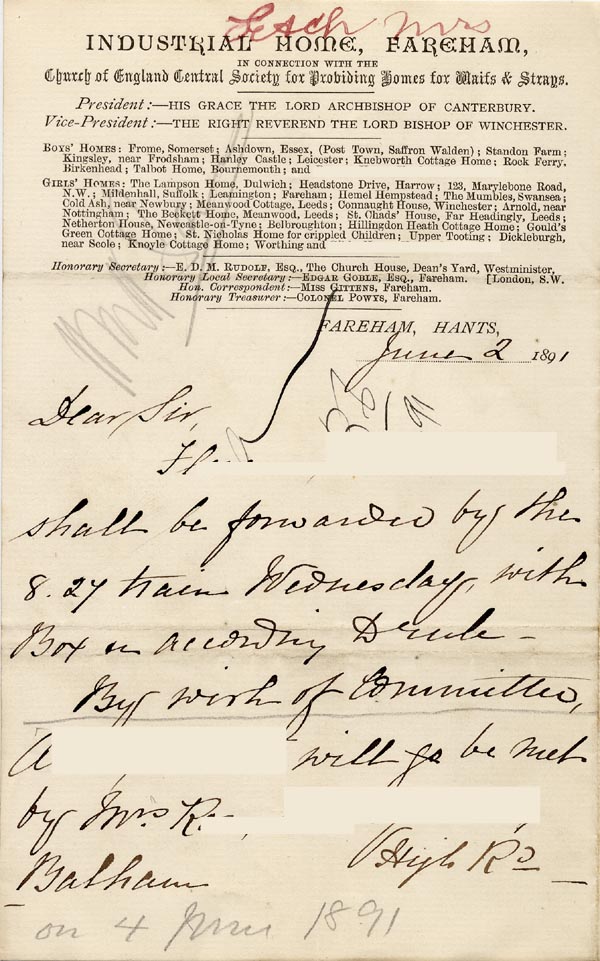 Each Mrs
INDUSTRIAL HOME, FAREHAM,
IN CONNECTION WITH THE
Church of England Central Society for Probiding Homes for Waifs & Strays.
President:—HIS GRACE THE LORD ARCHBISHOP OF CANTERBURY.
Vice-President:—THE RIGHT REVEREND THE LORD BISHOP OF WINCHESTER.
BOYS' HOMES: Frome, Somerset; Ashdown, Essex, (Post Town, Saffron Walden); Standon Farm;
Kingsley, near Frodsham; Hanley Castle; Leicester; Knebworth Cottage Home; Rock Ferry,
Birkenhead; Talbot Home, Bournemouth; and
GIRLS' HOMES: The Lampson Home, Dulwich; Headstone Drive, Harrow; 123, Marylebone Road,
N.W.; Mildenhall, Suffolk; Leamington; Fareham; Hemel Hempstead; The Mumbles, Swansea;
Cold Ash, near Newbury; Meanwood Cottage, Leeds; Connaught House, Winchester; Arnold, near
Nottingham; The Beckett Home, Meanwood, Leeds; St. Chads' House, Far Headingly, Leeds;
Netherton House, Newcastle-on-Tyne; Belbroughton; Hillingdon Heath Cottage Home; Gould's
Green Cottage Home; St. Nicholas Home for crippled Children; Upper Tooting; Dickleburgh,
near Scole; Knoyle Cottage Home; Worthing and
Honorary Secretary:—E. D. M. RUDOLF, ESQ., The Church House, Dean's Yard, Westminster,
Honorary Local Secretary:—EDGAR GOBLE, ESQ., Fareham. [London, S.W.
Hon. Correspondent:—MISS GITTENS, Fareham.
Honorary Treasurer:—COLONEL POWYS, Fareham.
FAREHAM, HANTS,
June 2 1891
Dear Sir,
shall be forwarded by the
8.27 train Wednesday, with
Box according
By wish of Committee,
A will go be met
by Mrs R
High Rd
Balham
on 4 June 1891